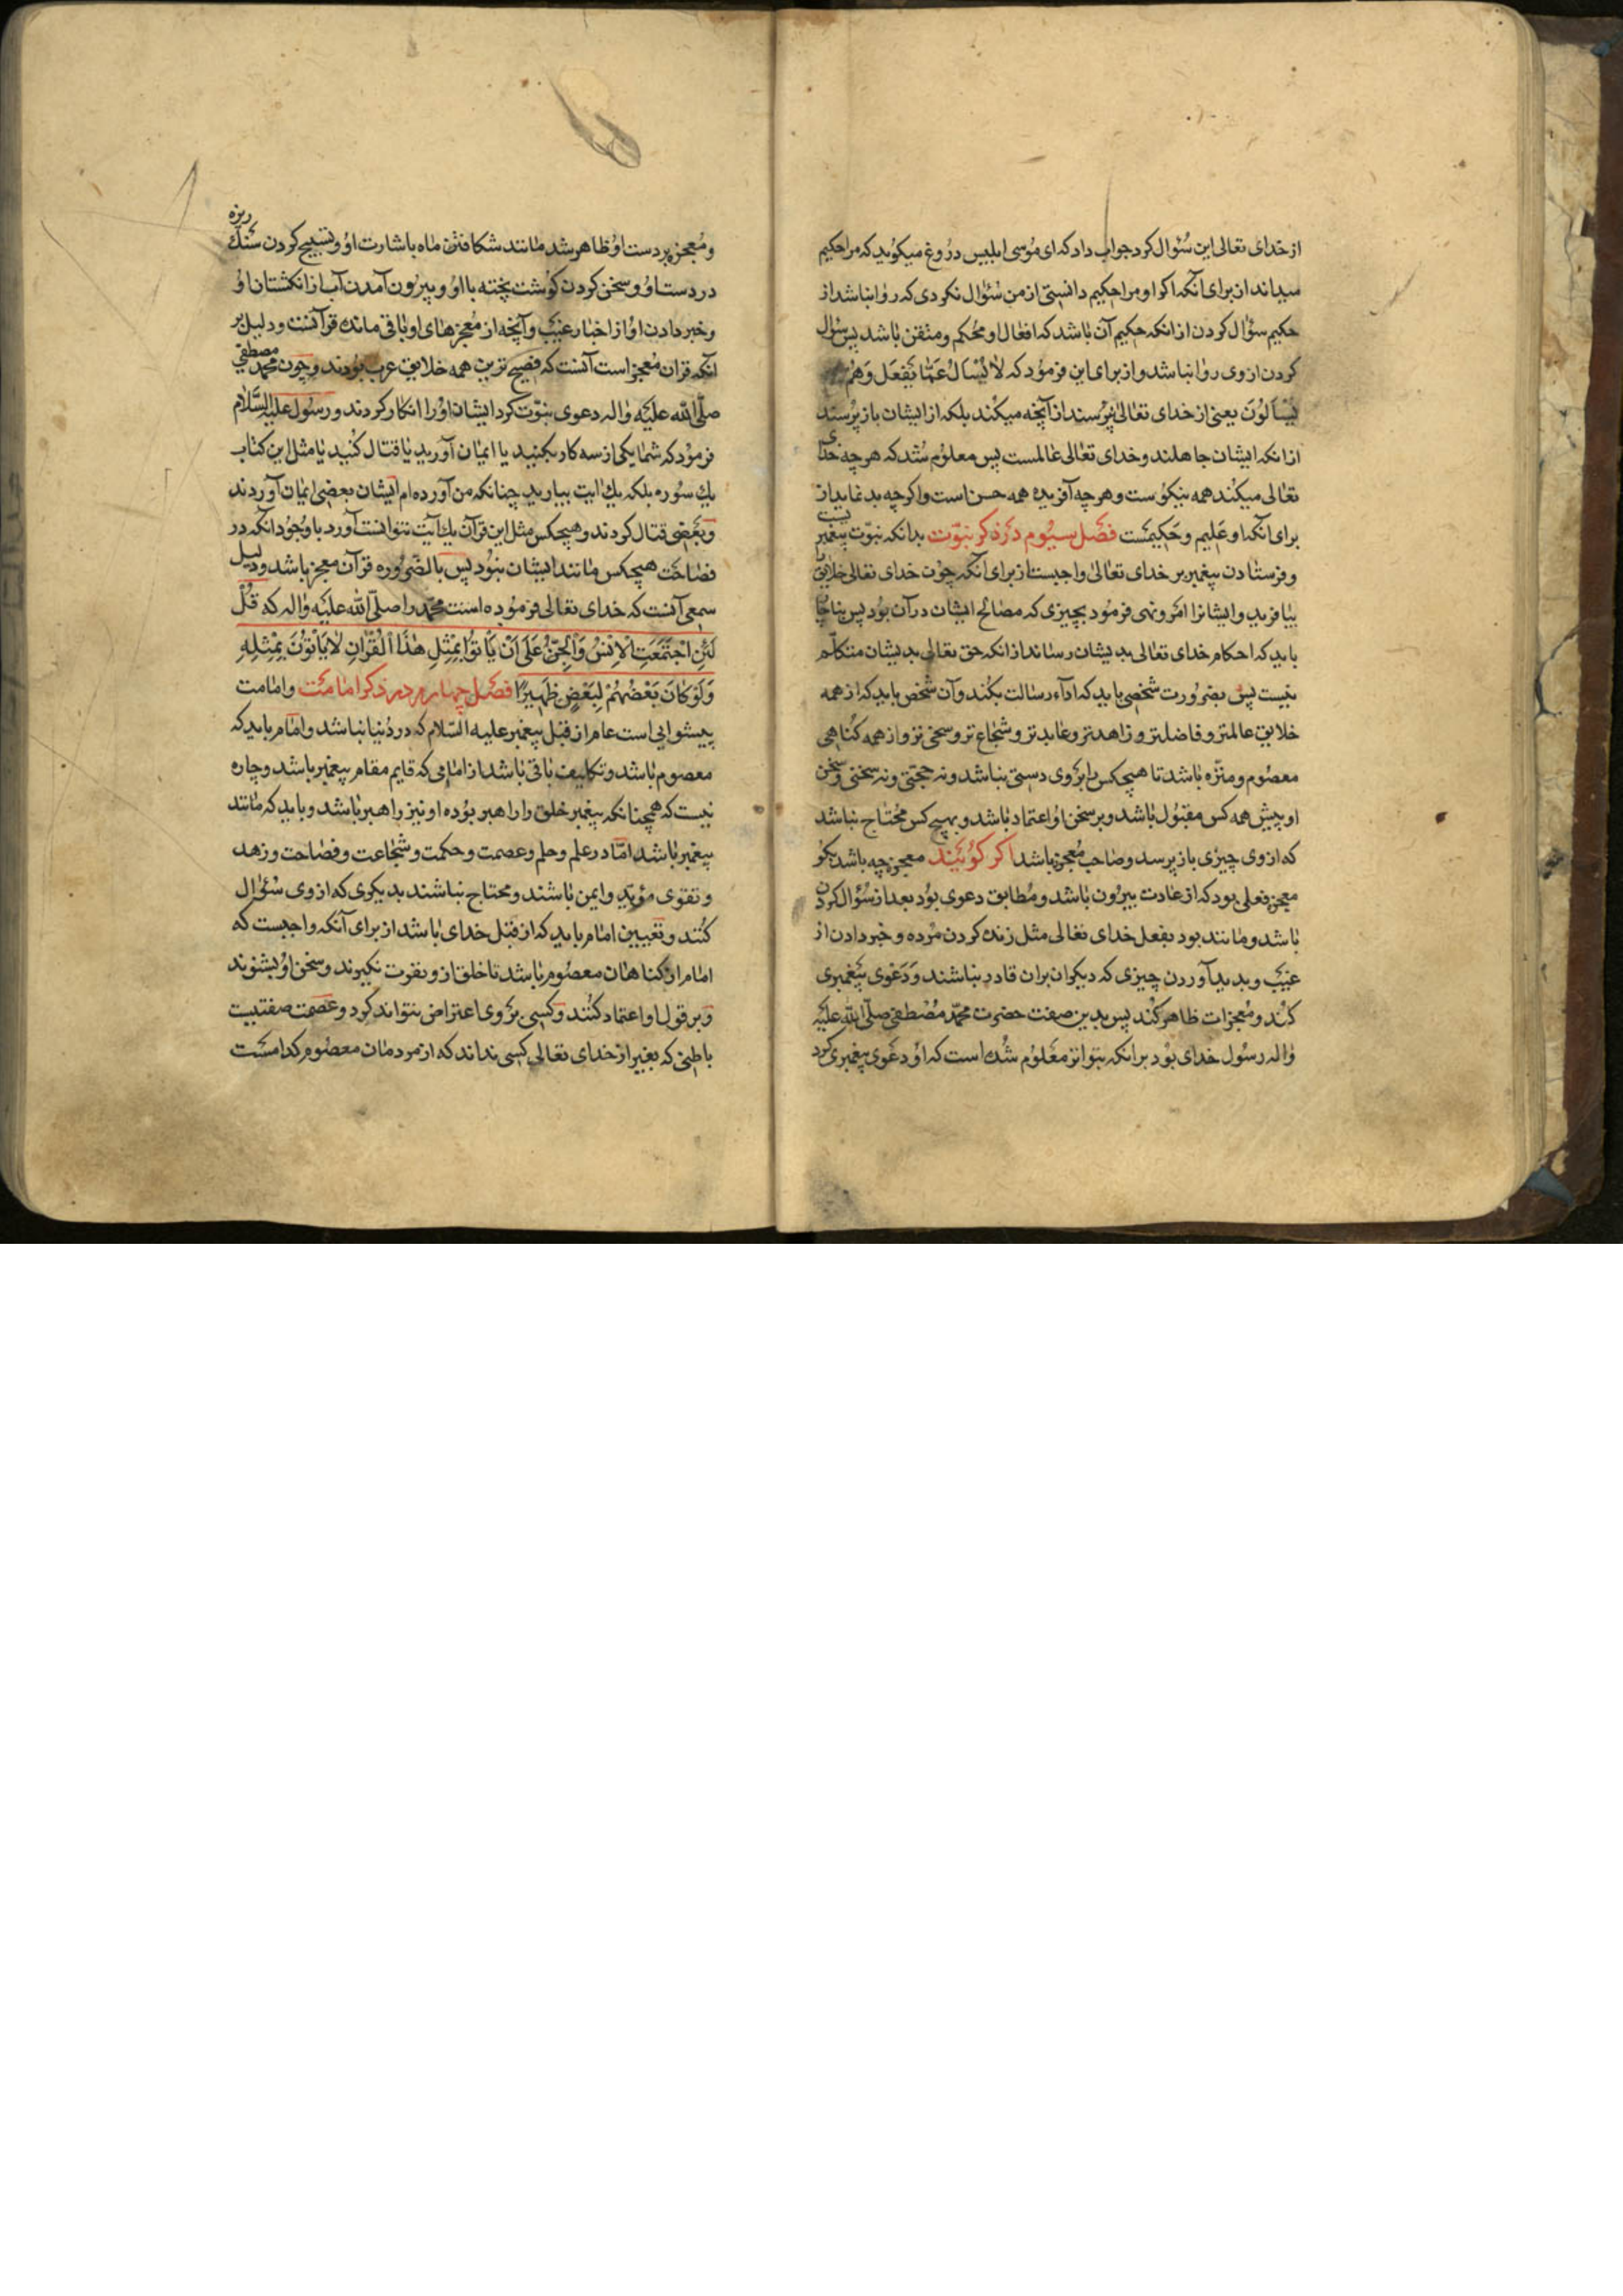 از خدای تعالی این سُؤال کرد جواب داد که ای مُوسی ابلیس درُوغ میکوُید که مرا حکیم
میداند از برای آنکه اکر او مرا حکیم دانستی از من سُؤال نکردی که روا نباشد از
حکیم سؤال کردن از انکه حکیم آن باشد که افعال او محُکم و متقن باشد پس سؤال
کردن از وی روا نباشد و از برای این فرموُد که لا یُسْأَلُ عَمّا یَفْعَل وَهُمْ
یُسْأَلوُنَ یعنی از خدای تعالی نپرْسند از آنچه میکند بلکه از ایشان باز پرْسند
از انکه ایشان جاهلند و خدای تعالی عالمست پس معلوُم شُد که هر چه خدای
تعالی میکند همه نیکوُست و هر چه آفریده همه حسن است و اکر چه بد نماید از
برای آنکه او عَلِیم و حَکیمَست فصَل سیُّوم دَر ذکر نبوّت بدانکه نبوّت پیغمبریست
و فرستادن پیغمبر بر خدای تعالی واجبست از برای آنکه چوُن خدای تعالی خلایق را
بیافرید و ایشانرا امَر و نهی فرموُد بچیزی که مصالح ایشان در آن بوُد پس بناچار
باید که احکام خدای تعالی بدیشان رساند از انکه حق تعالی بدیشان متکلّم
نیست پس بضرُورت شخصی باید که ادآء رسالت بکند و آن شخص باید که از همه
خلایق عالمتر و فاضلتر و زاهدتر و عابدتر و شجاع تر و سخی تر و از همه کناهی
معصوُم و منزّه باشد تا هیچکس را بَر وی دستی نباشد و نه حجّتی و نه سخنی و سخن
او پیش همه کس مقبوُل باشد و بر سخن اوُ اعتماد باشد و بهیچ کس محُتاج نباشد
که از وی چیزی باز پرسد و صاحب مُعجزه باشد اکر کوُیَند معجزه چه باشد بکو
معجزه فعلی بود که از عادت بیرُون باشد و مُطابق دعوی بوُد بعد از سُؤال کردن
باشد و مانند بود بفعل خدای تعالی مثل زنده کردن مرْده و خبر دادن از
غیَب و پدید آوردن چیزی که دیکران بران قادر نباشند وَ دَعْوی پَیغمبری
کنْد و مُعجزات ظاهر کُند پس بدین صفت حضرت محمّد مُصْطفی صلّی اللّٰه علیَه
وٰاله رسُول خدای بوُد برانکه بتواتر معَلوُم شُده است که اوُ دعَوی پیغمبری کرد
و مُعجزه بر دست اوُ ظاهر شد مانند شکافتن ماه باشارت اوُ و تسبیح کردن سنَک ریزه
در دست اوُ و سخن کردن کوُشت پخته با اوُ و بیرُون آمدن آب از انکشتان اوُ
و خبر دادن اوُ از اخبار غیَب و آنچه از مُعجزهای او باقی مانده قرآنست و دلیل بر
آنکه قران مُعجز است آنست که فصیح ترین همه خلایق عرب بوُدند و چوُن محمّد مصطفی
صلّی اللّٰه علیَه وٰاله دعوی نبوّت کرد ایشان اوُرا انکار کردند و رسُول علیه السَّلام
فرموُد که شما یکی از سه کار بکنید یا ایمان آورید یا قتال کُنید یا مثل این کتاب
یك سوُره بلکه یك ایت بیاورید چنانکه من آورده ام ایشان بعضی ایمان آوردند
و بعَضی قتال کردند و هیچکس مثل این قرآن یك آیَت نتوانست آورد با وجُوُد انکه در
فصَاحَت هیچکس مانند ایشان نبوُد پس بالضّرُوره قرآن معجز باشد و دلیل
سمعی آنست که خدای تعالی فرموُده است محمّد را صلّی اللّٰه علیَه وٰاله که قُلْ
لَئِنِ اجْتَمَعَتِ الْاِنْسُ وَالْجِنُّ عَلٰی اَنْ یَأتُوا بِمِثْلِ هٰذَا الْقُرْاٰنِ لٰا یَأْتوُنَ بِمِثْلِهِ
وَلَوْ کٰانَ بَعْضُهُمْ لِبَعْضٍ ظَهیرًا فصَل چهارم در ذکر امامَت و امامت
پیشوایی است عام از قبل پیغمبر علیه السّلام که در دُنیا نباشد و امام باید که
معصوم باشد و تکالیف باقی باشد از امامی که قایم مقام پیغمبر باشد و چاره
نیست که همچنانکه پیغمبر خلق را راهبر بوُده او نیز راهبر باشد و باید که مانند
پیغمبر باشد امّا در علم و حلم و عصمت و حکمت و شُجاعت و فصاحت و زهد
و تقوی مؤید و ایمن باشند و محتاج نباشند بدیکری که از وی سُؤال
کنُند و تعَیین امام باید که از قبل خدای باشد از برای آنکه واجبست که
امام از کناهان معصوُم باشد تا خلق از و نفرت نکیرند و سخن اوُ بشنوند
و بر قول او اعتماد کنُند و کسی بَر وی اعتراض نتواند کرد و عصَمت صفتیست
باطنی که بغیر از خدای تعالی کسی نداند که از مردمان معصوُم کدامسَت